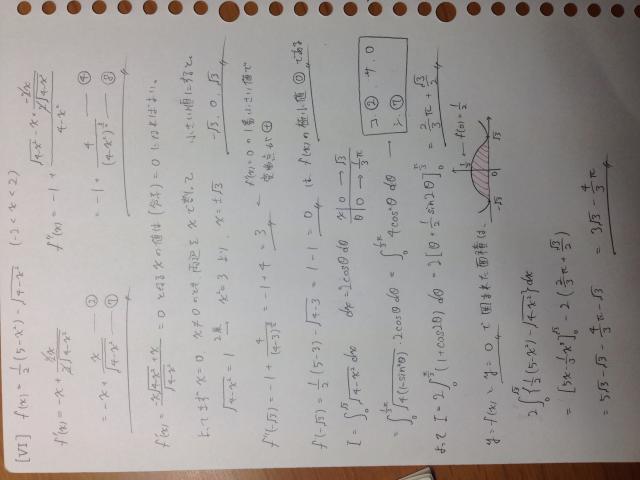 [VI] f(x) = 1/2(5-x²) - √(4-x²) (-2<x<2)
f'(x) = -x + 2x/(2√(4-x²))
= -x + x/√(4-x²) — ② — ⑦
f''(x) = -1 + (√(4-x²) - x · -2x/(2√(4-x²)))/(4-x²)
= -1 + 4/(4-x²)^(3/2) — ④ — ⑧
f'(x) = (-x√(4-x²)+x)/√(4-x²) = 0 となるxの値は (分子) = 0 になればよい。
よってまず x=0 x≠0のとき 両辺を x で割って 小さい順に書くと、
√(4-x²) = 1 2乗→ x²=3 より、x=±√3 -√3, 0, √3
f''(-√3) = -1 + 4/(4-3)^(3/2) = -1+4 = 3 ← f'(x)=0 の1番小さい値で
f(-√3) = 1/2(5-3) - √(4-3) = 1-1 = 0 は f(x)の極小値⓪である
I = ∫₀^√3 √(4-x²) dx dx = 2cosθ dθ x | 0 → √3
θ | 0 → 1/3π
= ∫₀^(1/3π) √(4(1-sin²θ)) · 2cosθ dθ = ∫₀^(1/3π) 4cos²θ dθ →
よって I = 2∫₀^(π/3) (1+cos2θ) dθ = 2[θ+1/2 sin2θ]₀^(π/3) = 2/3π + √3/2
y=f(x) と y=0 で囲まれた面積は、
-√3 √3 1/2 ← f(0)=1/2
2∫₀^√3 {1/2(5-x²) - √(4-x²)} dx
= [5x-1/3x³]₀^√3 - 2(2/3π + √3/2)
= 5√3-√3-4/3π-√3 = 3√3-4/3π